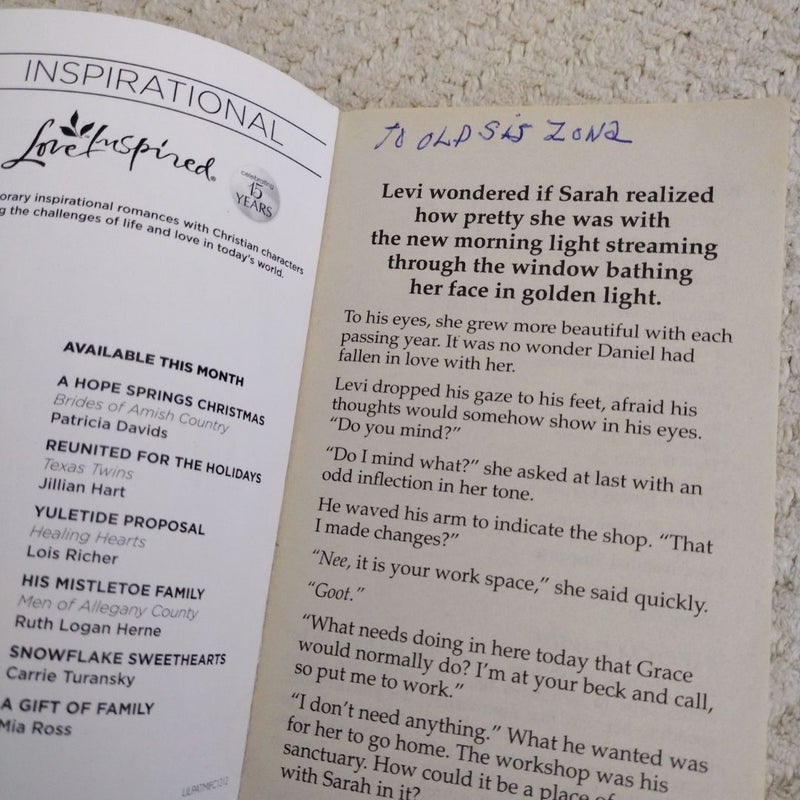 INSPIRATIONAL
Love Inspired®
celebrating
15
YEARS
orary inspirational romances with Christian characters
g the challenges of life and love in today's world.
AVAILABLE THIS MONTH
A HOPE SPRINGS CHRISTMAS
Brides of Amish Country
Patricia Davids
REUNITED FOR THE HOLIDAYS
Texas Twins
Jillian Hart
YULETIDE PROPOSAL
Healing Hearts
Lois Richer
HIS MISTLETOE FAMILY
Men of Allegany County
Ruth Logan Herne
SNOWFLAKE SWEETHEARTS
Carrie Turansky
A GIFT OF FAMILY
Mia Ross
LILPATMIFC1212
TO OLD SIS ZONA
Levi wondered if Sarah realized
how pretty she was with
the new morning light streaming
through the window bathing
her face in golden light.
To his eyes, she grew more beautiful with each
passing year. It was no wonder Daniel had
fallen in love with her.
Levi dropped his gaze to his feet, afraid his
thoughts would somehow show in his eyes.
"Do you mind?"
"Do I mind what?" she asked at last with an
odd inflection in her tone.
He waved his arm to indicate the shop. "That
I made changes?"
"Nee, it is your work space," she said quickly.
"Goot."
"What needs doing in here today that Grace
would normally do? I'm at your beck and call,
so put me to work."
"I don't need anything." What he wanted was
for her to go home. The workshop was his
sanctuary. How could it be a place of
with Sarah in it?